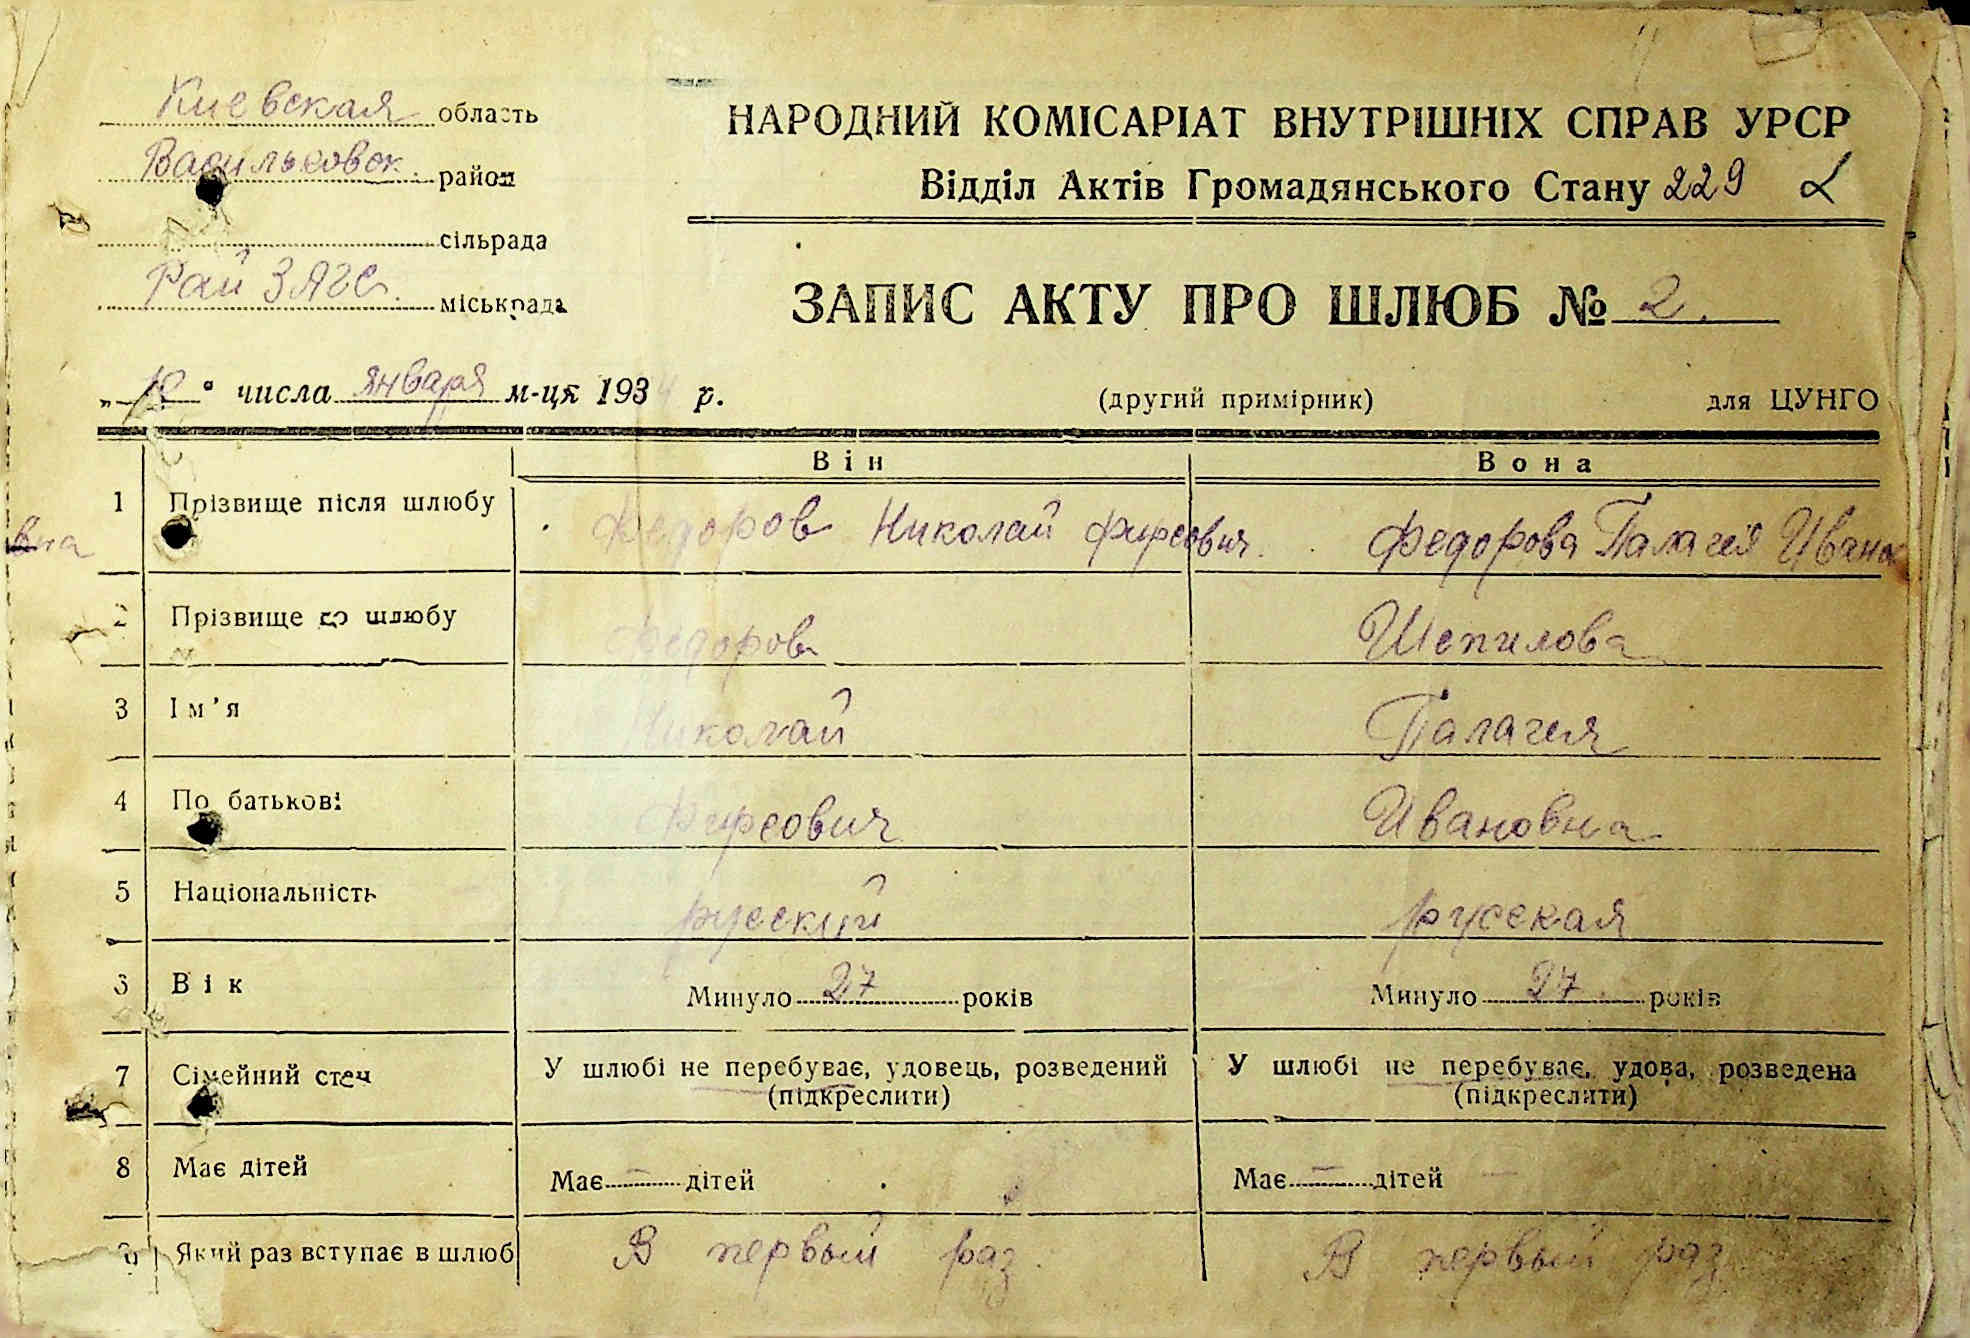 Киевская область
Васильковск. район
сільрада
Рай ЗАГС. міськрада
НАРОДНИЙ КОМІСАРІАТ ВНУТРІШНІХ СПРАВ УРСР
Відділ Актів Громадянського Стану 229
ЗАПИС АКТУ ПРО ШЛЮБ № 2.
числа января м-ця 193 р.
(другий примірник) для ЦУНГО
Він Вона
1 Прізвище після шлюбу Федоров Николай Фирсович. Федорова Палагея Ивано
вна
2 Прізвище до шлюбу Федоров Шепилова
3 Ім'я Николай Палагея
4 По батькові Фирсович Ивановна
5 Національність русский русская
6 Вік Минуло 27 років Минуло 27 років
7 Сімейний стан У шлюбі не перебуває, удовець, розведений У шлюбі не перебуває, удова, розведена
(підкреслити) (підкреслити)
8 Має дітей Має — дітей Має — дітей —
Який раз вступає в шлюб В первый раз. В первый раз